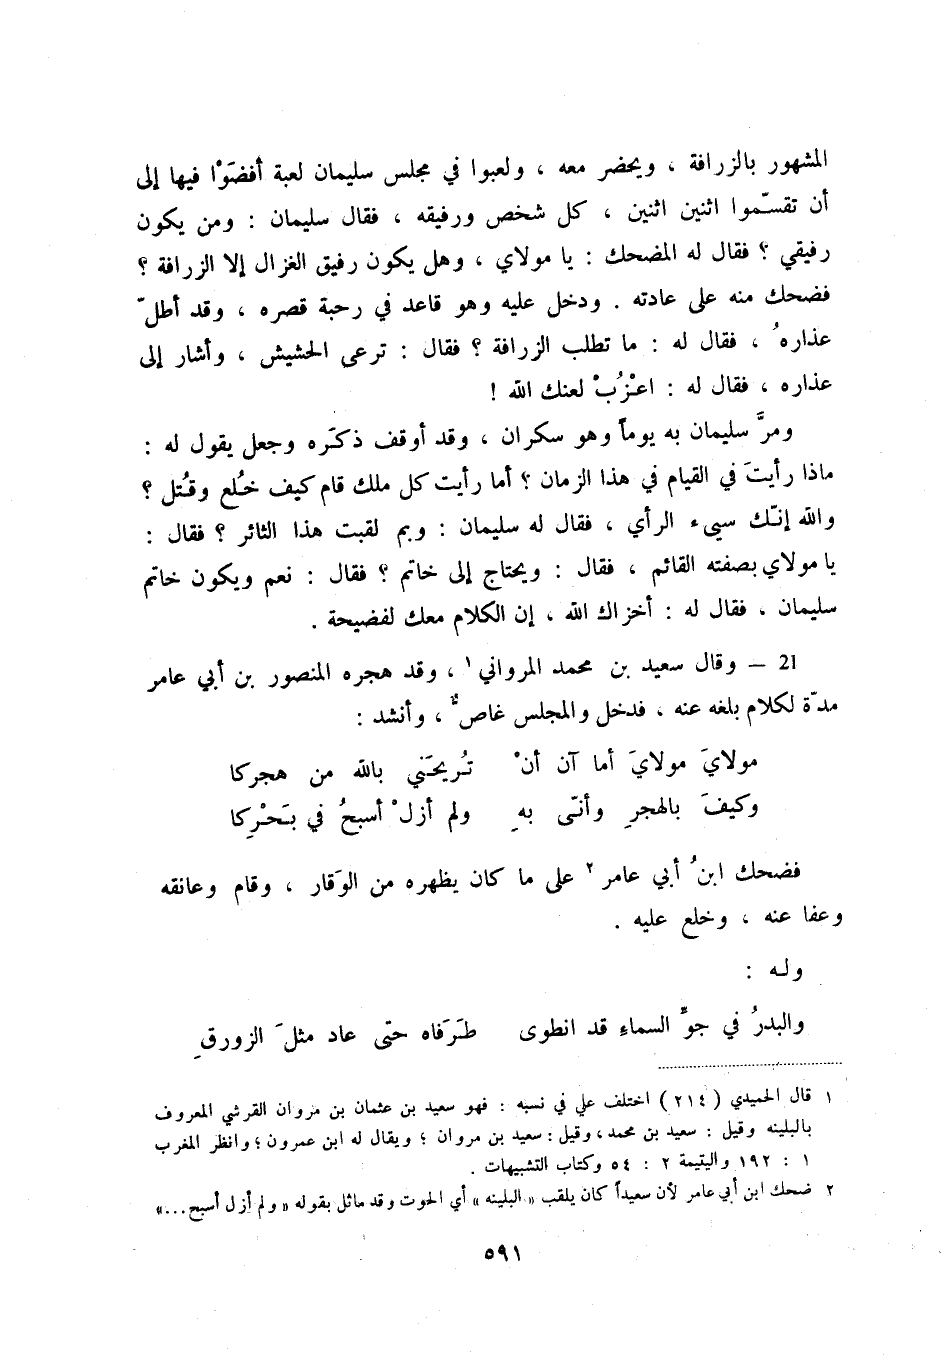 المشهور بالزرافة ، ويحضر معه ، ولعبوا في مجلس سليمان لعبة أفضَوْا فيها إلى
أن تقسّموا اثنين اثنين ، كل شخص ورفيقه ، فقال سليمان : ومن يكون
رفيقي ؟ فقال له المضحك : يا مولاي ، وهل يكون رفيق الغزال إلا الزرافة ؟
فضحك منه على عادته . ودخل عليه وهو قاعد في رحبة قصره ، وقد أطلّ
عذارهُ ، فقال له : ما تطلب الزرافة ؟ فقال : ترعى الحشيش ، وأشار إلى
عذاره ، فقال له : اعْزُبْ لعنك الله !
ومرَّ سليمان به يوماً وهو سكران ، وقد أوقف ذكَره وجعل يقول له :
ماذا رأيتَ في القيام في هذا الزمان ؟ أما رأيت كل ملك قام كيف خُلع وقُتل ؟
والله إنّك سيىء الرأي ، فقال له سليمان : وبم لقبت هذا الثائر ؟ فقال :
يا مولاي بصفته القائم ، فقال : ويحتاج إلى خاتم ؟ فقال : نعم ويكون خاتم
سليمان . فقال له : أخزاك الله ، إن الكلام معك لفضيحة .
21 – وقال سعيد بن محمد المرواني ١ ، وقد هجره المنصور بن أبي عامر
مدّة لكلام بلغه عنه ، فدخل والمجلس غاصٌّ ، وأنشد :
مولايَ مولايَ أما آن أنْ تُريحَني بالله من هجركا
وكيفَ بالهجرِ وأنّى بهِ ولم أزلْ أسبحُ في بَحْرِكا
فضحك ابنُ أبي عامر ٢ على ما كان يظهره من الوَقار ، وقام وعانقه
وعفا عنه ، وخلع عليه .
وله :
والبدرُ في جوِّ السماءِ قد انطوى طَرَفاه حتى عاد مثلَ الزورقِ
١ قال الحميدي ( ٢١٤ ) اختلف علي في نسبه : فهو سعيد بن عثمان بن مروان القرشي المعروف
بالبلينه وقيل : سعيد بن محمد ، وقيل : سعيد بن مروان ؛ ويقال له ابن عمرون ؛ وانظر المغرب
١ : ١٩٢ واليتيمة ٢ : ٥٤ وكتاب التشبيهات .
٢ ضحك ابن أبي عامر لأن سعيداً كان يلقب « البلينه » أي الحوت وقد ماثل بقوله « ولم أزل أسبح ... »
٥٩١